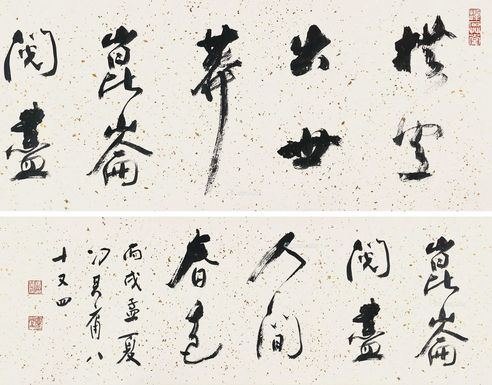 横空
出世
莽
崑崙
閱盡
崑崙
閱盡
人間
春色
丙戌孟夏
冯其庸八
十又四